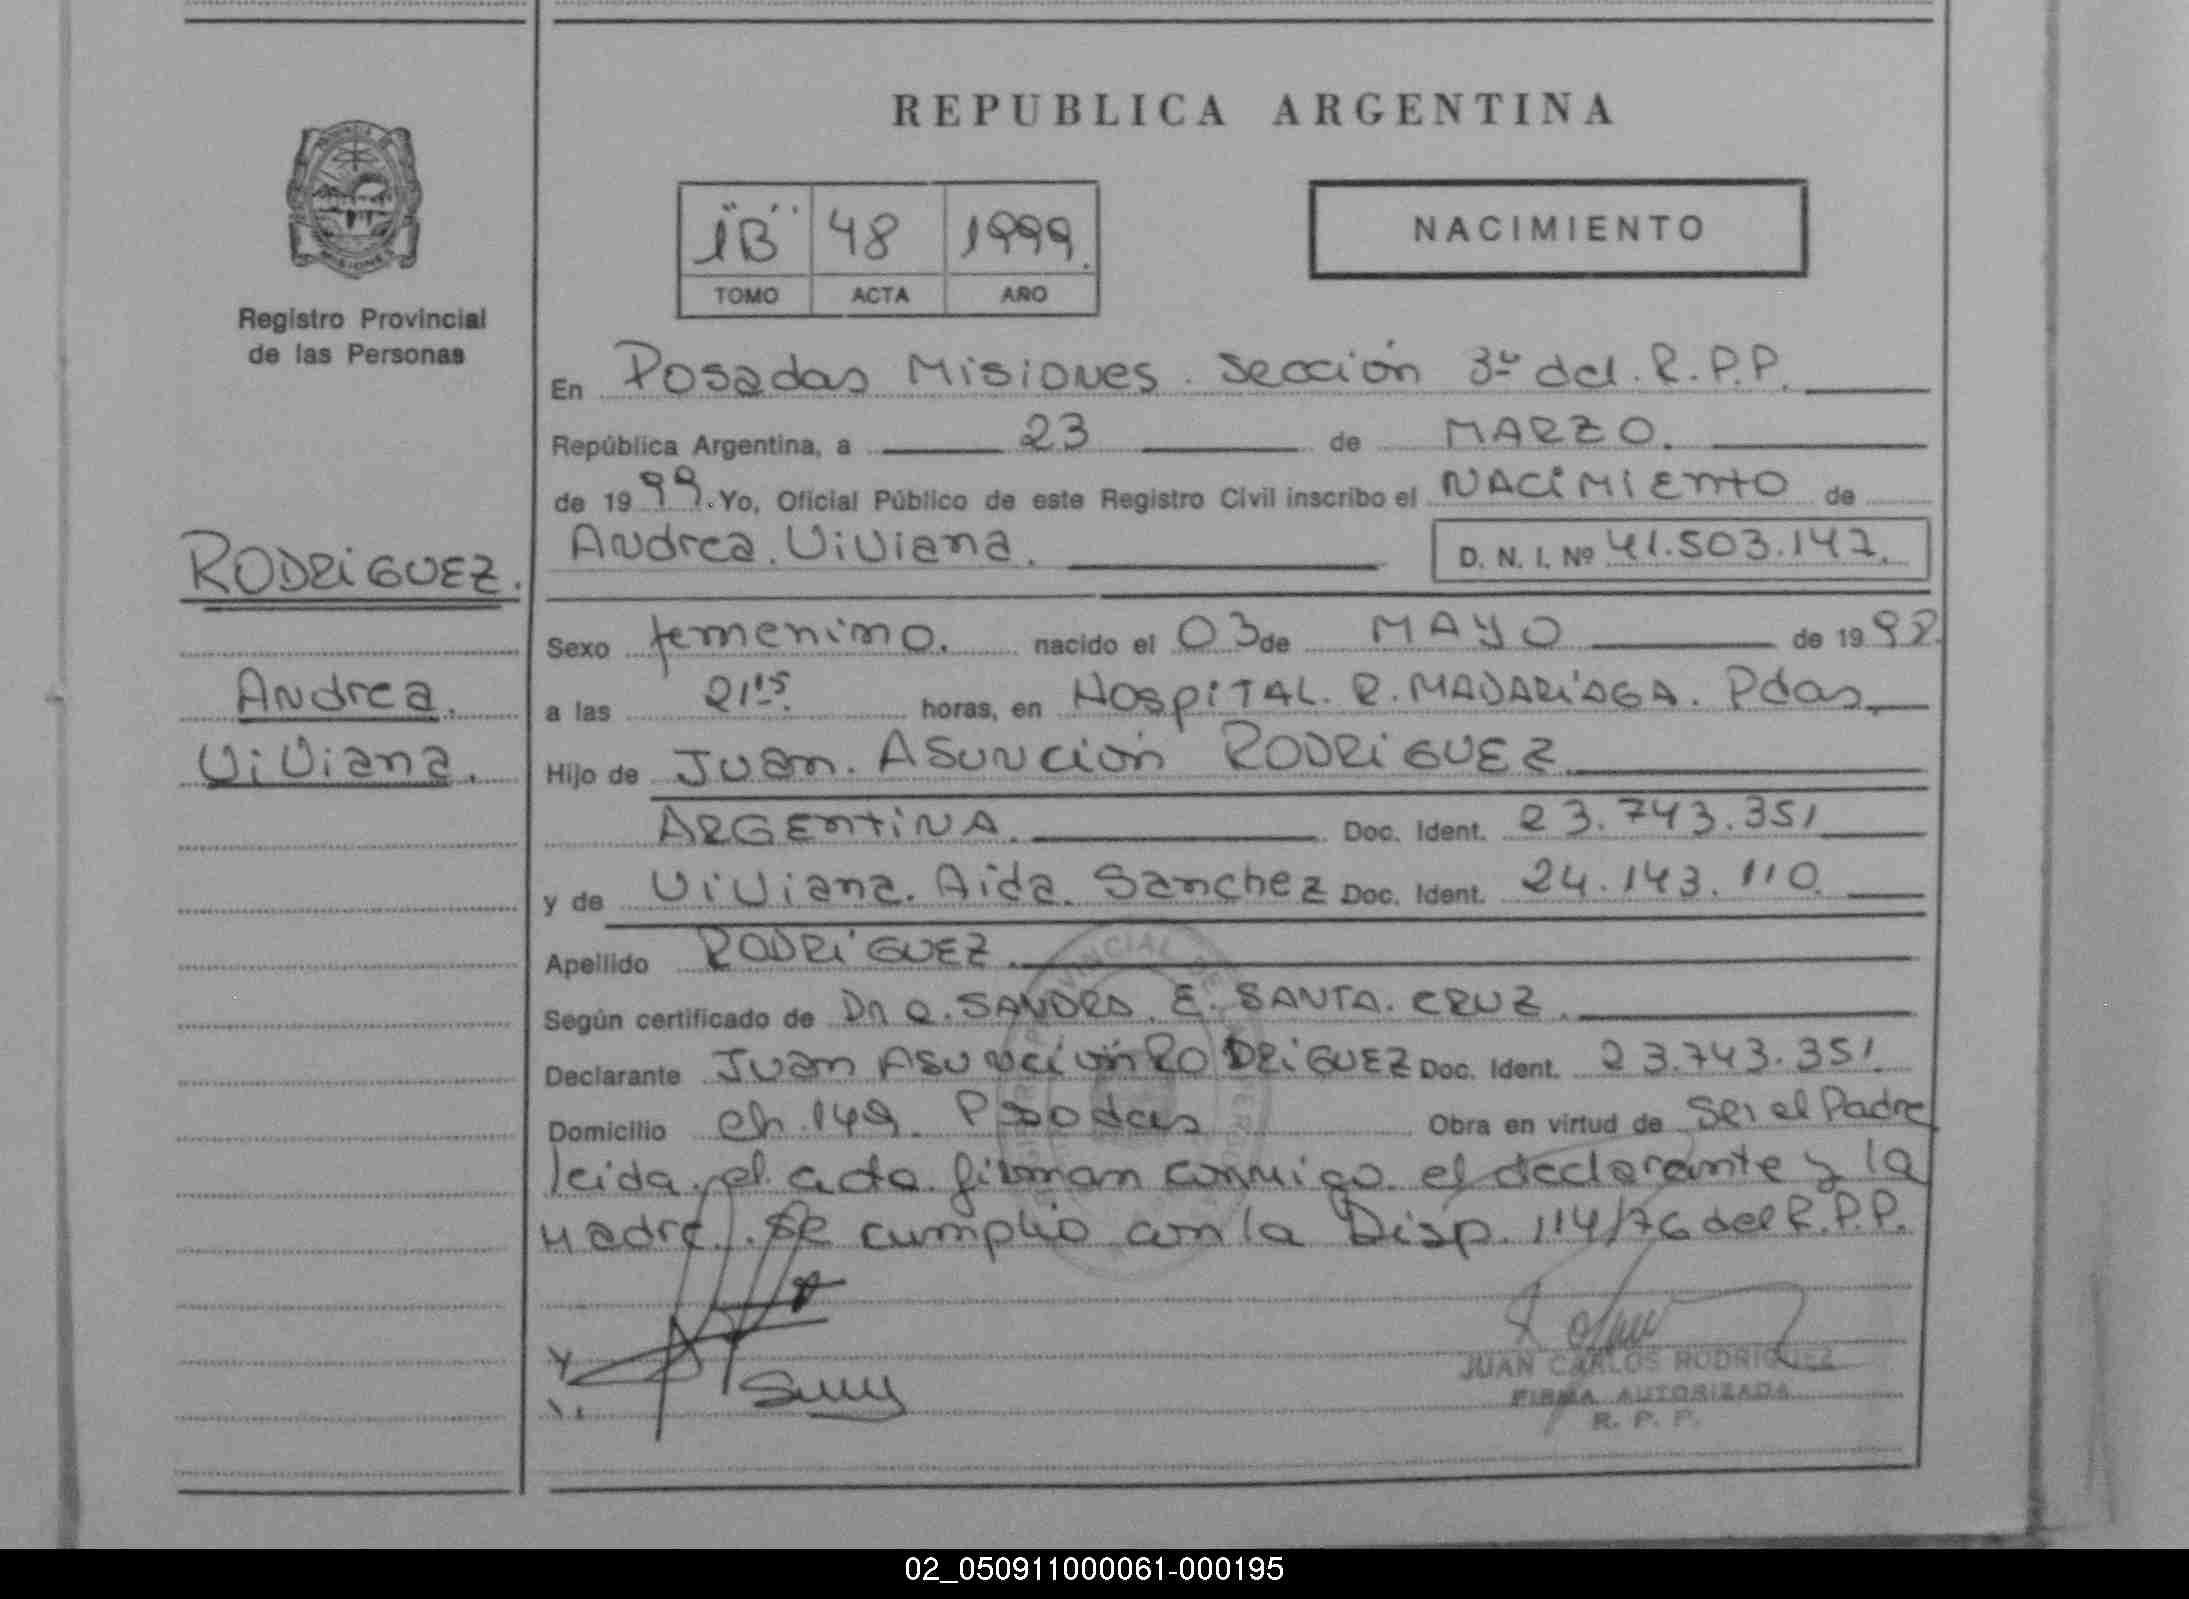 REPUBLICA ARGENTINA
1"B" 48 1999.
TOMO ACTA AÑO
NACIMIENTO
MISIONES
Registro Provincial
de las Personas
En Posadas Misiones. Sección 3º del. R.P.P.
República Argentina, a 23 de MARZO.
de 1999. Yo, Oficial Público de este Registro Civil inscribo el NACIMIENTO de
Andrea. Viviana. D. N. I. Nº 41.503.147.
RODRIGUEZ.
Andrea.
Viviana.
Sexo femenino. nacido el 03 de MAYO de 1998.
a las 21:15. horas, en HOSPITAL. R. MADARIAGA. Pdas.
Hijo de Juan. Asunción RODRIGUEZ
ARGENTINA. Doc. Ident. 23.743.351
y de Viviana. Aida. Sanchez Doc. Ident. 24.143.110.
Apellido RODRIGUEZ.
Según certificado de Dra. SANDRA. E. SANTA. CRUZ.
Declarante Juan Asunción RODRIGUEZ Doc. Ident. 23.743.351.
Domicilio ch. 149. Obra en virtud de Ser el Padre
leida. el acta firman conmigo el declarante y la
Madre. Se cumplio con la Disp. 114/76 del R.P.P.
JUAN CARLOS RODRIGUEZ
FIRMA AUTORIZADA
R. P. P.
02_050911000061-000195